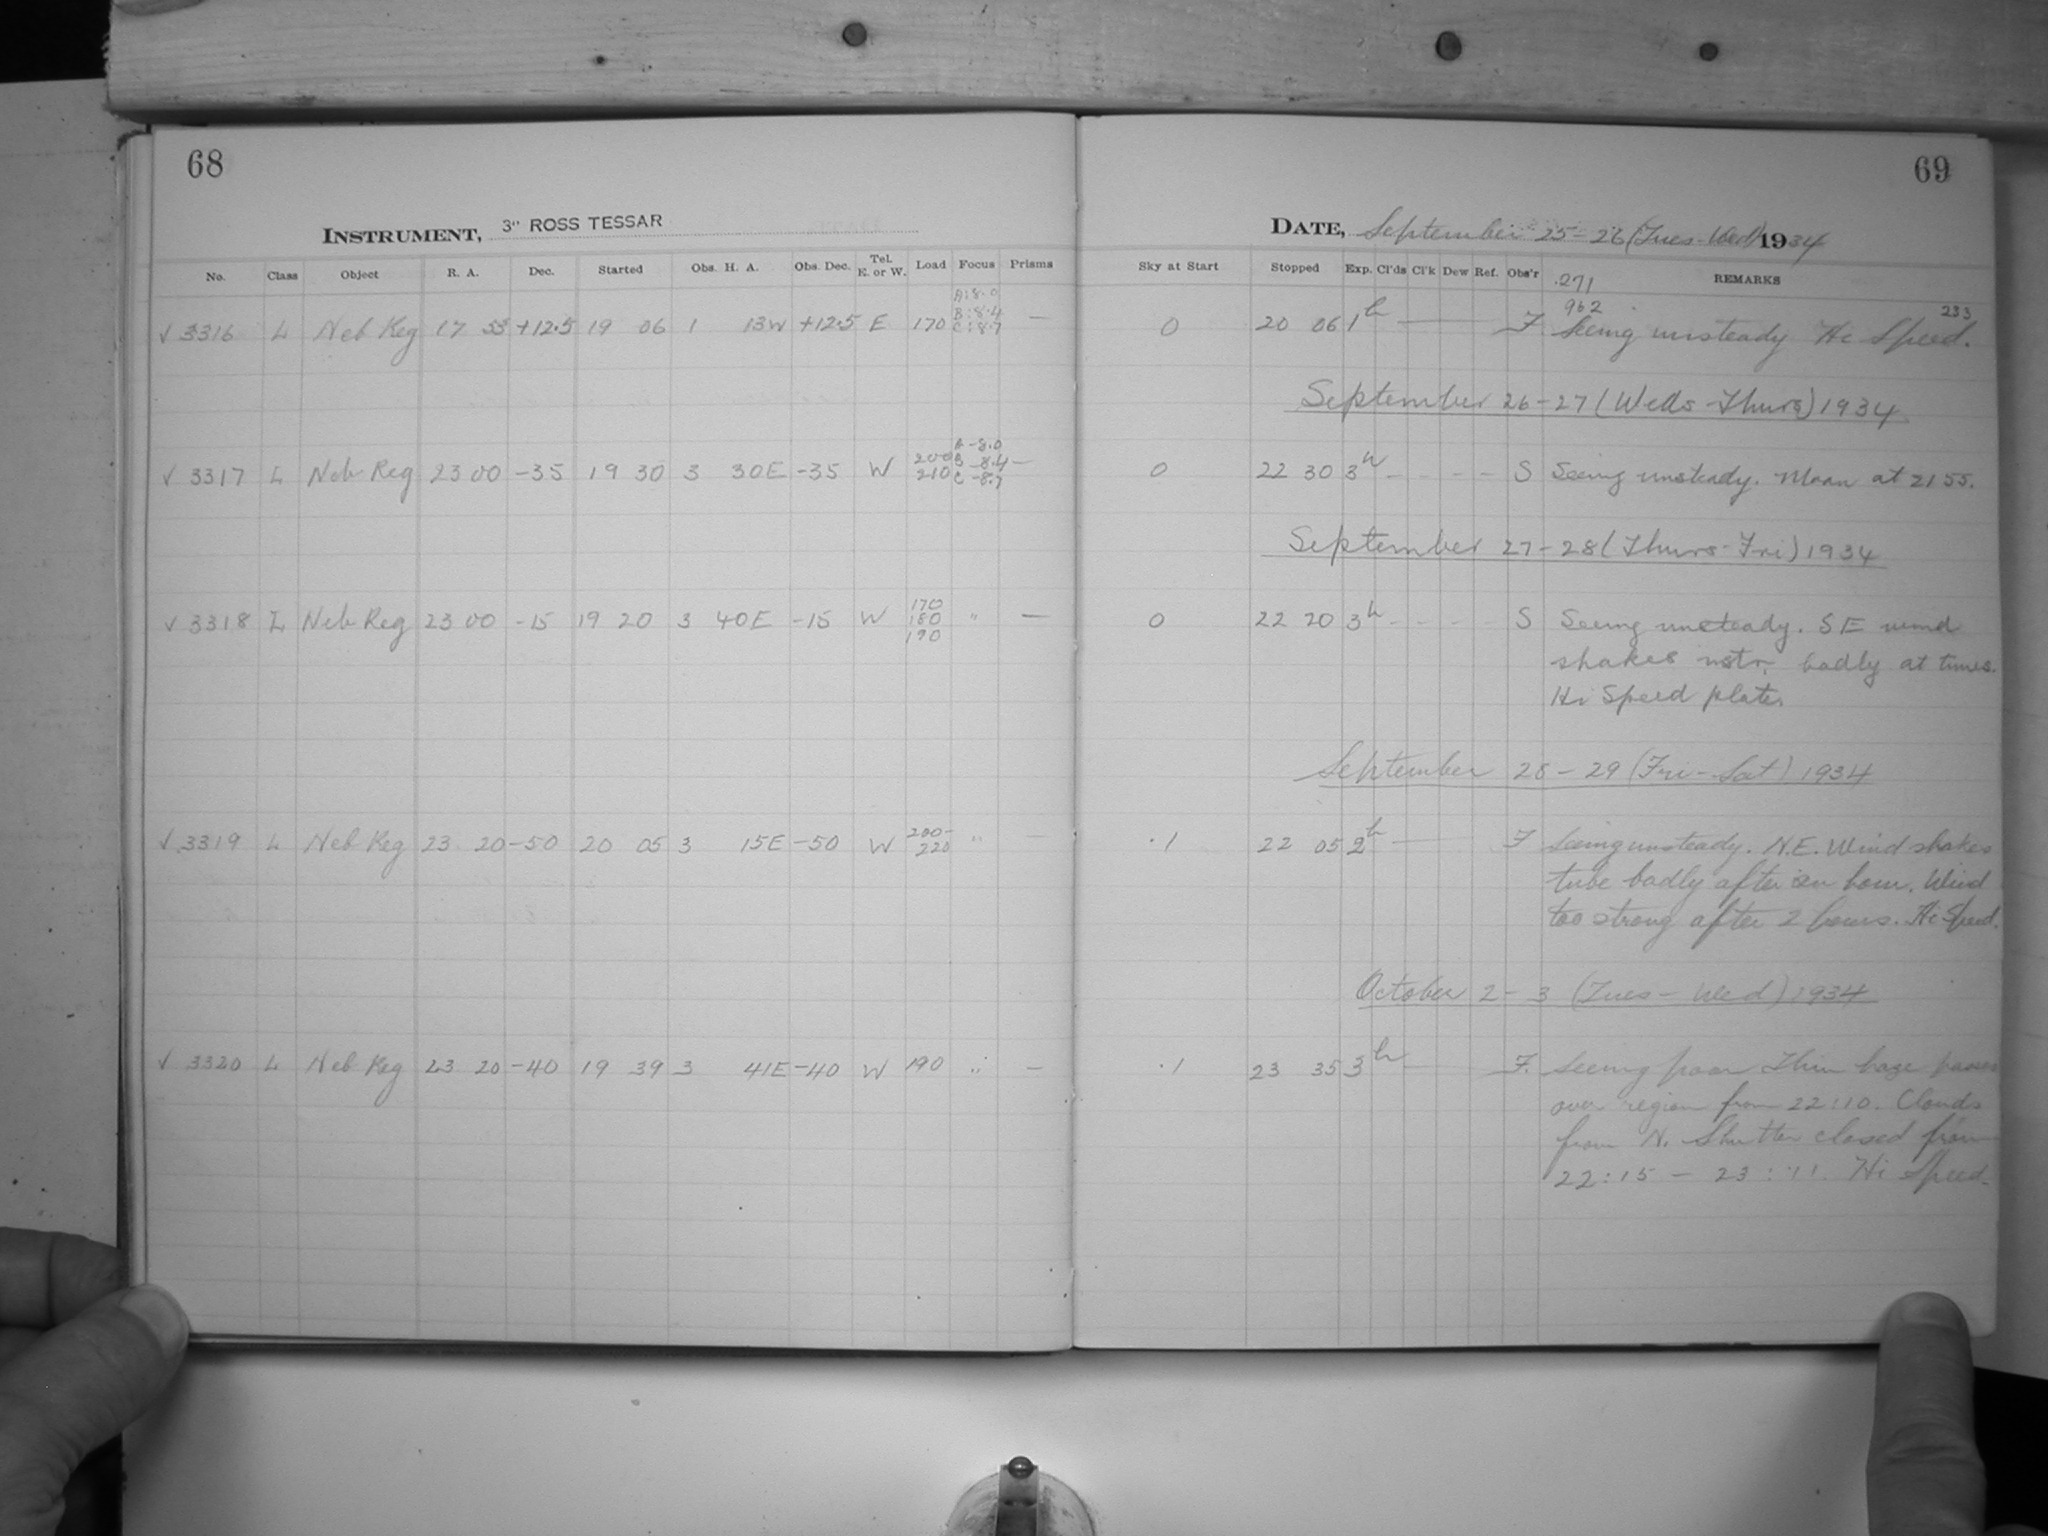 68
INSTRUMENT, 3" ROSS TESSAR
No. Class Object R. A. Dec. Started Obs. H. A. Obs. Dec. Tel. E. or W. Load Focus Prisms
√ 3316 L Neb Reg 17 55 +12.5 19 06 1 13W +12.5 E 170 A:8.0 B:8.4 C:8.7 —
√ 3317 L Neb Reg 23 00 -35 19 30 3 30E -35 W 200 210 A -8.0 B -8.4 C -8.7 —
√ 3318 L Neb Reg 23 00 -15 19 20 3 40E -15 W 170 180 190 " —
√ 3319 L Neb Reg 23 20 -50 20 05 3 15E -50 W 200- 220 " —
√ 3320 L Neb Reg 23 20 -40 19 39 3 41E -40 W 190 " —
69
DATE, September 25-26 (Tues-Wed) 1934
Sky at Start Stopped Exp. Cl'ds Cl'k Dew Ref. Obs'r REMARKS
.271
962 233
0 20 06 1h — F Seeing unsteady Hi Speed.
September 26-27 (Weds-Thurs) 1934
0 22 30 3h - - - - S Seeing unsteady. Moon at 2155.
September 27-28 (Thurs-Fri) 1934
0 22 20 3h - - - - S Seeing unsteady. SE wind
shakes instr. badly at times.
Hi Speed plates
September 28-29 (Fri-Sat) 1934
.1 22 05 2h — F Seeing unsteady. N.E. Wind shakes
tube badly after an hour. Wind
too strong after 2 hours. Hi Speed.
October 2-3 (Tues-Wed) 1934
.1 23 35 3h — F. Seeing poor Thin haze passes
over region from 22:10. Clouds
from N. Shutter closed from
22:15 - 23:11. Hi Speed.